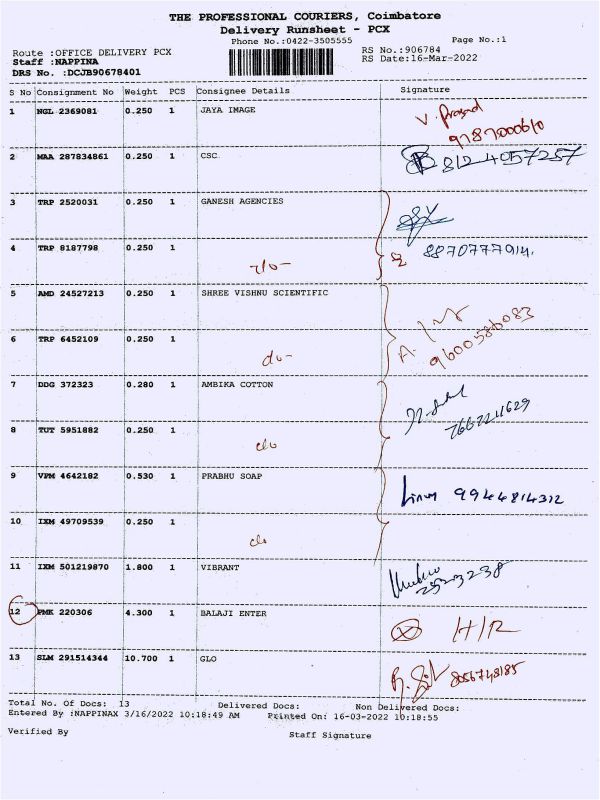 THE PROFESSIONAL COURIERS, Coimbatore
Delivery Runsheet - PCX
Phone No.:0422-3505555
Page No.:1
Route :OFFICE DELIVERY PCX
RS No.:906784
Staff :NAPPINA
RS Date:16-Mar-2022
DRS No. :DCJB90678401
S No Consignment No Weight PCS Consignee Details Signature
1 NGL 2369081 0.250 1 JAYA IMAGE V. Prasad
9787000610
2 MAA 287834861 0.250 1 CSC 8124057257
3 TRP 2520031 0.250 1 GANESH AGENCIES
4 TRP 8187798 0.250 1 8870777914.
5 AMD 24527213 0.250 1 SHREE VISHNU SCIENTIFIC
6 TRP 6452109 0.250 1 do- 9600586083
7 DDG 372323 0.280 1 AMBIKA COTTON
7667211629
8 TUT 5951882 0.250 1 do
9 VPM 4642182 0.530 1 PRABHU SOAP 9944814312
10 IXM 49709539 0.250 1 do
11 IXM 501219870 1.800 1 VIBRANT
12 PMK 220306 4.300 1 BALAJI ENTER H/R
13 SLM 291514344 10.700 1 GLO 8056748185
Total No. Of Docs: 13 Delivered Docs: Non Delivered Docs:
Entered By :NAPPINAX 3/16/2022 10:18:49 AM Printed On: 16-03-2022 10:18:55
Verified By
Staff Signature